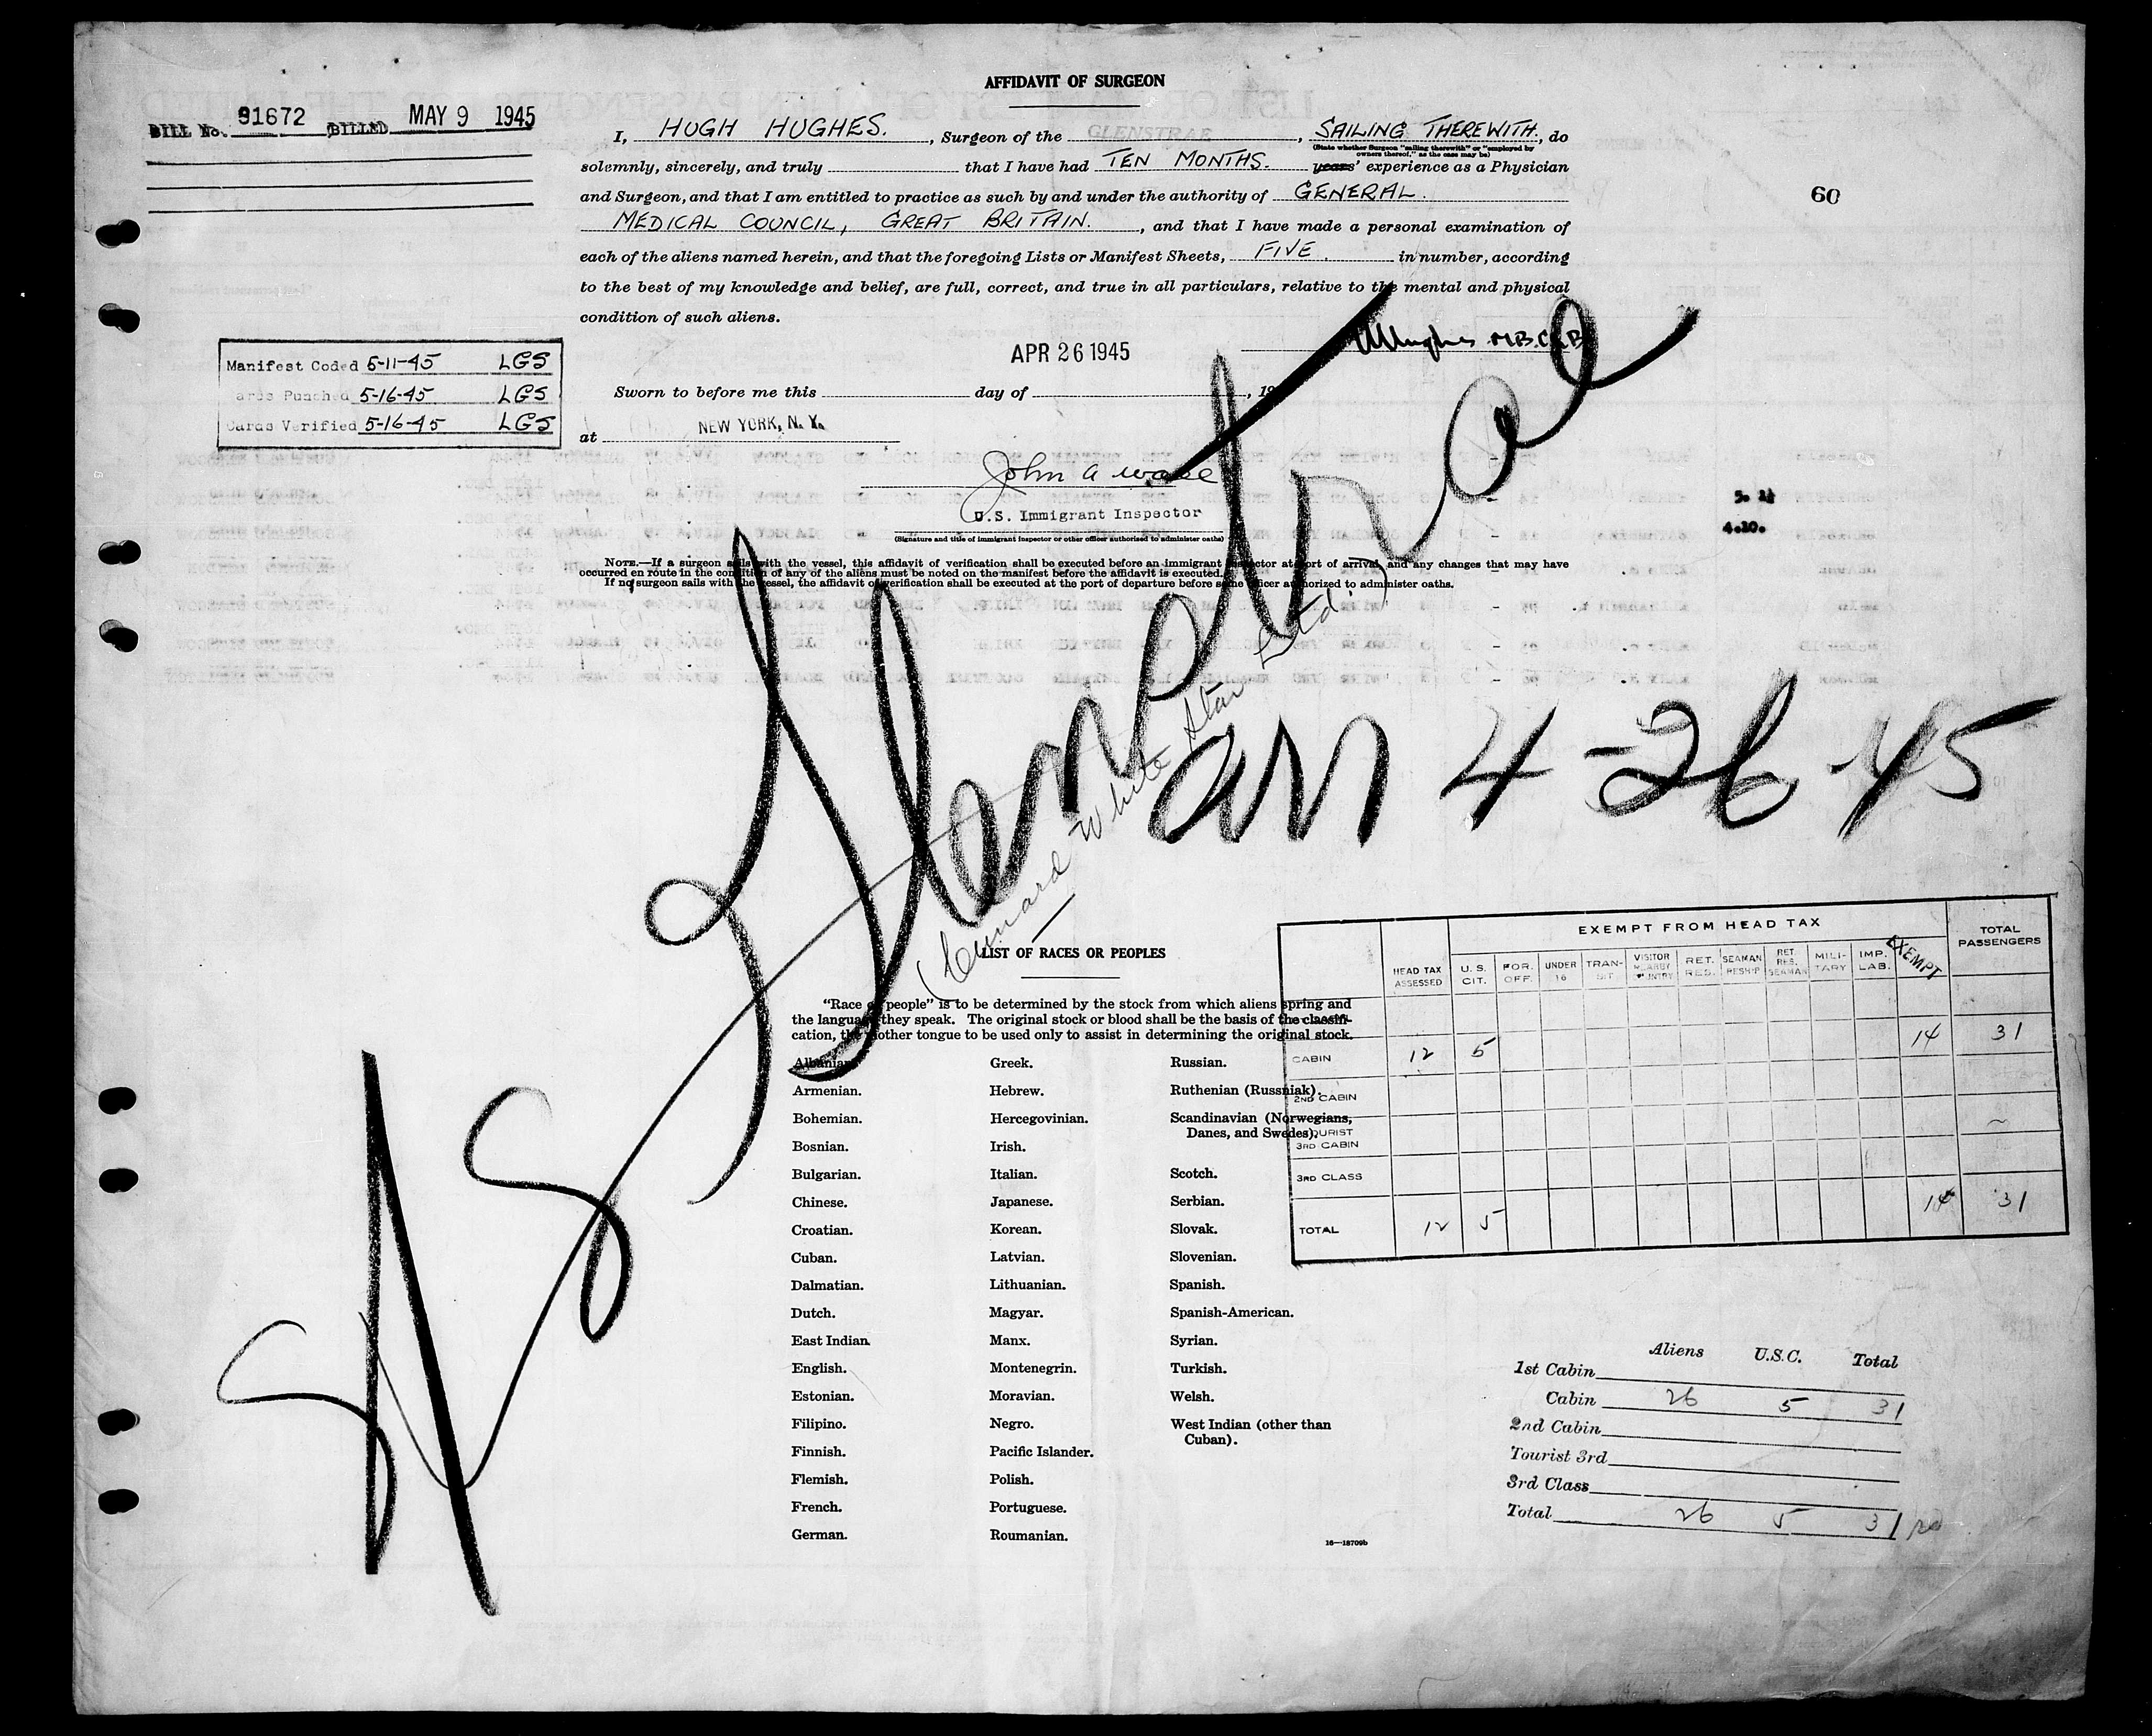 AFFIDAVIT OF SURGEON
BILL No. 91672 BILLED MAY 9 1945
I, HUGH HUGHES., Surgeon of the GLENSTRAE, SAILING THEREWITH., do
(State whether Surgeon "sailing therewith" or "employed by
owners thereof," as the case may be)
solemnly, sincerely, and truly that I have had TEN MONTHS. years' experience as a Physician
and Surgeon, and that I am entitled to practice as such by and under the authority of GENERAL.
60
MEDICAL COUNCIL, GREAT BRITAIN., and that I have made a personal examination of
each of the aliens named herein, and that the foregoing Lists or Manifest Sheets, FIVE. in number, according
to the best of my knowledge and belief, are full, correct, and true in all particulars, relative to the mental and physical
condition of such aliens.
Manifest Coded 5-11-45 LGS
ards Punched 5-16-45 LGS
Cards Verified 5-16-45 LGS
APR 26 1945
Sworn to before me this day of , 19
at NEW YORK, N. Y.
John A
U.S. Immigrant Inspector
(Signature and title of immigrant inspector or other officer authorized to administer oaths)
4.10.
NOTE.—If a surgeon sails with the vessel, this affidavit of verification shall be executed before an immigrant inspector at port of arrival, and any changes that may have
occurred en route in the condition of any of the aliens must be noted on the manifest before the affidavit is executed.
If no surgeon sails with the vessel, the affidavit of verification shall be executed at the port of departure before some officer authorized to administer oaths.
SS Glenstrae
(Cunard White Star Ltd.)
arr 4-26-45
LIST OF RACES OR PEOPLES
"Race or people" is to be determined by the stock from which aliens spring and
the language they speak. The original stock or blood shall be the basis of the classifi-
cation, the mother tongue to be used only to assist in determining the original stock.
Albanian.
Armenian.
Bohemian.
Bosnian.
Bulgarian.
Chinese.
Croatian.
Cuban.
Dalmatian.
Dutch.
East Indian.
English.
Estonian.
Filipino.
Finnish.
Flemish.
French.
German.
Greek.
Hebrew.
Hercegovinian.
Irish.
Italian.
Japanese.
Korean.
Latvian.
Lithuanian.
Magyar.
Manx.
Montenegrin.
Moravian.
Negro.
Pacific Islander.
Polish.
Portuguese.
Roumanian.
Russian.
Ruthenian (Russniak).
Scandinavian (Norwegians,
Danes, and Swedes).
Scotch.
Serbian.
Slovak.
Slovenian.
Spanish.
Spanish-American.
Syrian.
Turkish.
Welsh.
West Indian (other than
Cuban).
16—18709b
EXEMPT FROM HEAD TAX
HEAD TAX ASSESSED U.S. CIT. FOR. OFF. UNDER 16 TRAN-SIT VISITOR NEARBY COUNTRY RET. RES. SEAMAN RESHIP RET. RES. SEAMAN MILI-TARY IMP. LAB. EXEMPT TOTAL PASSENGERS
CABIN 12 5 14 31
2ND CABIN
TOURIST
3RD CABIN
3RD CLASS
TOTAL 12 5 14 31
Aliens U.S.C. Total
1st Cabin
Cabin 26 5 31
2nd Cabin
Tourist 3rd
3rd Class
Total 26 5 31